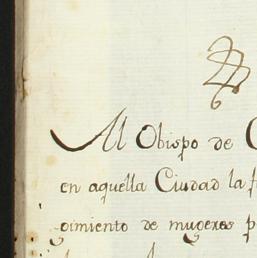 Al Obispo de C
en aquella Ciudad la f
gimiento de mugeres p